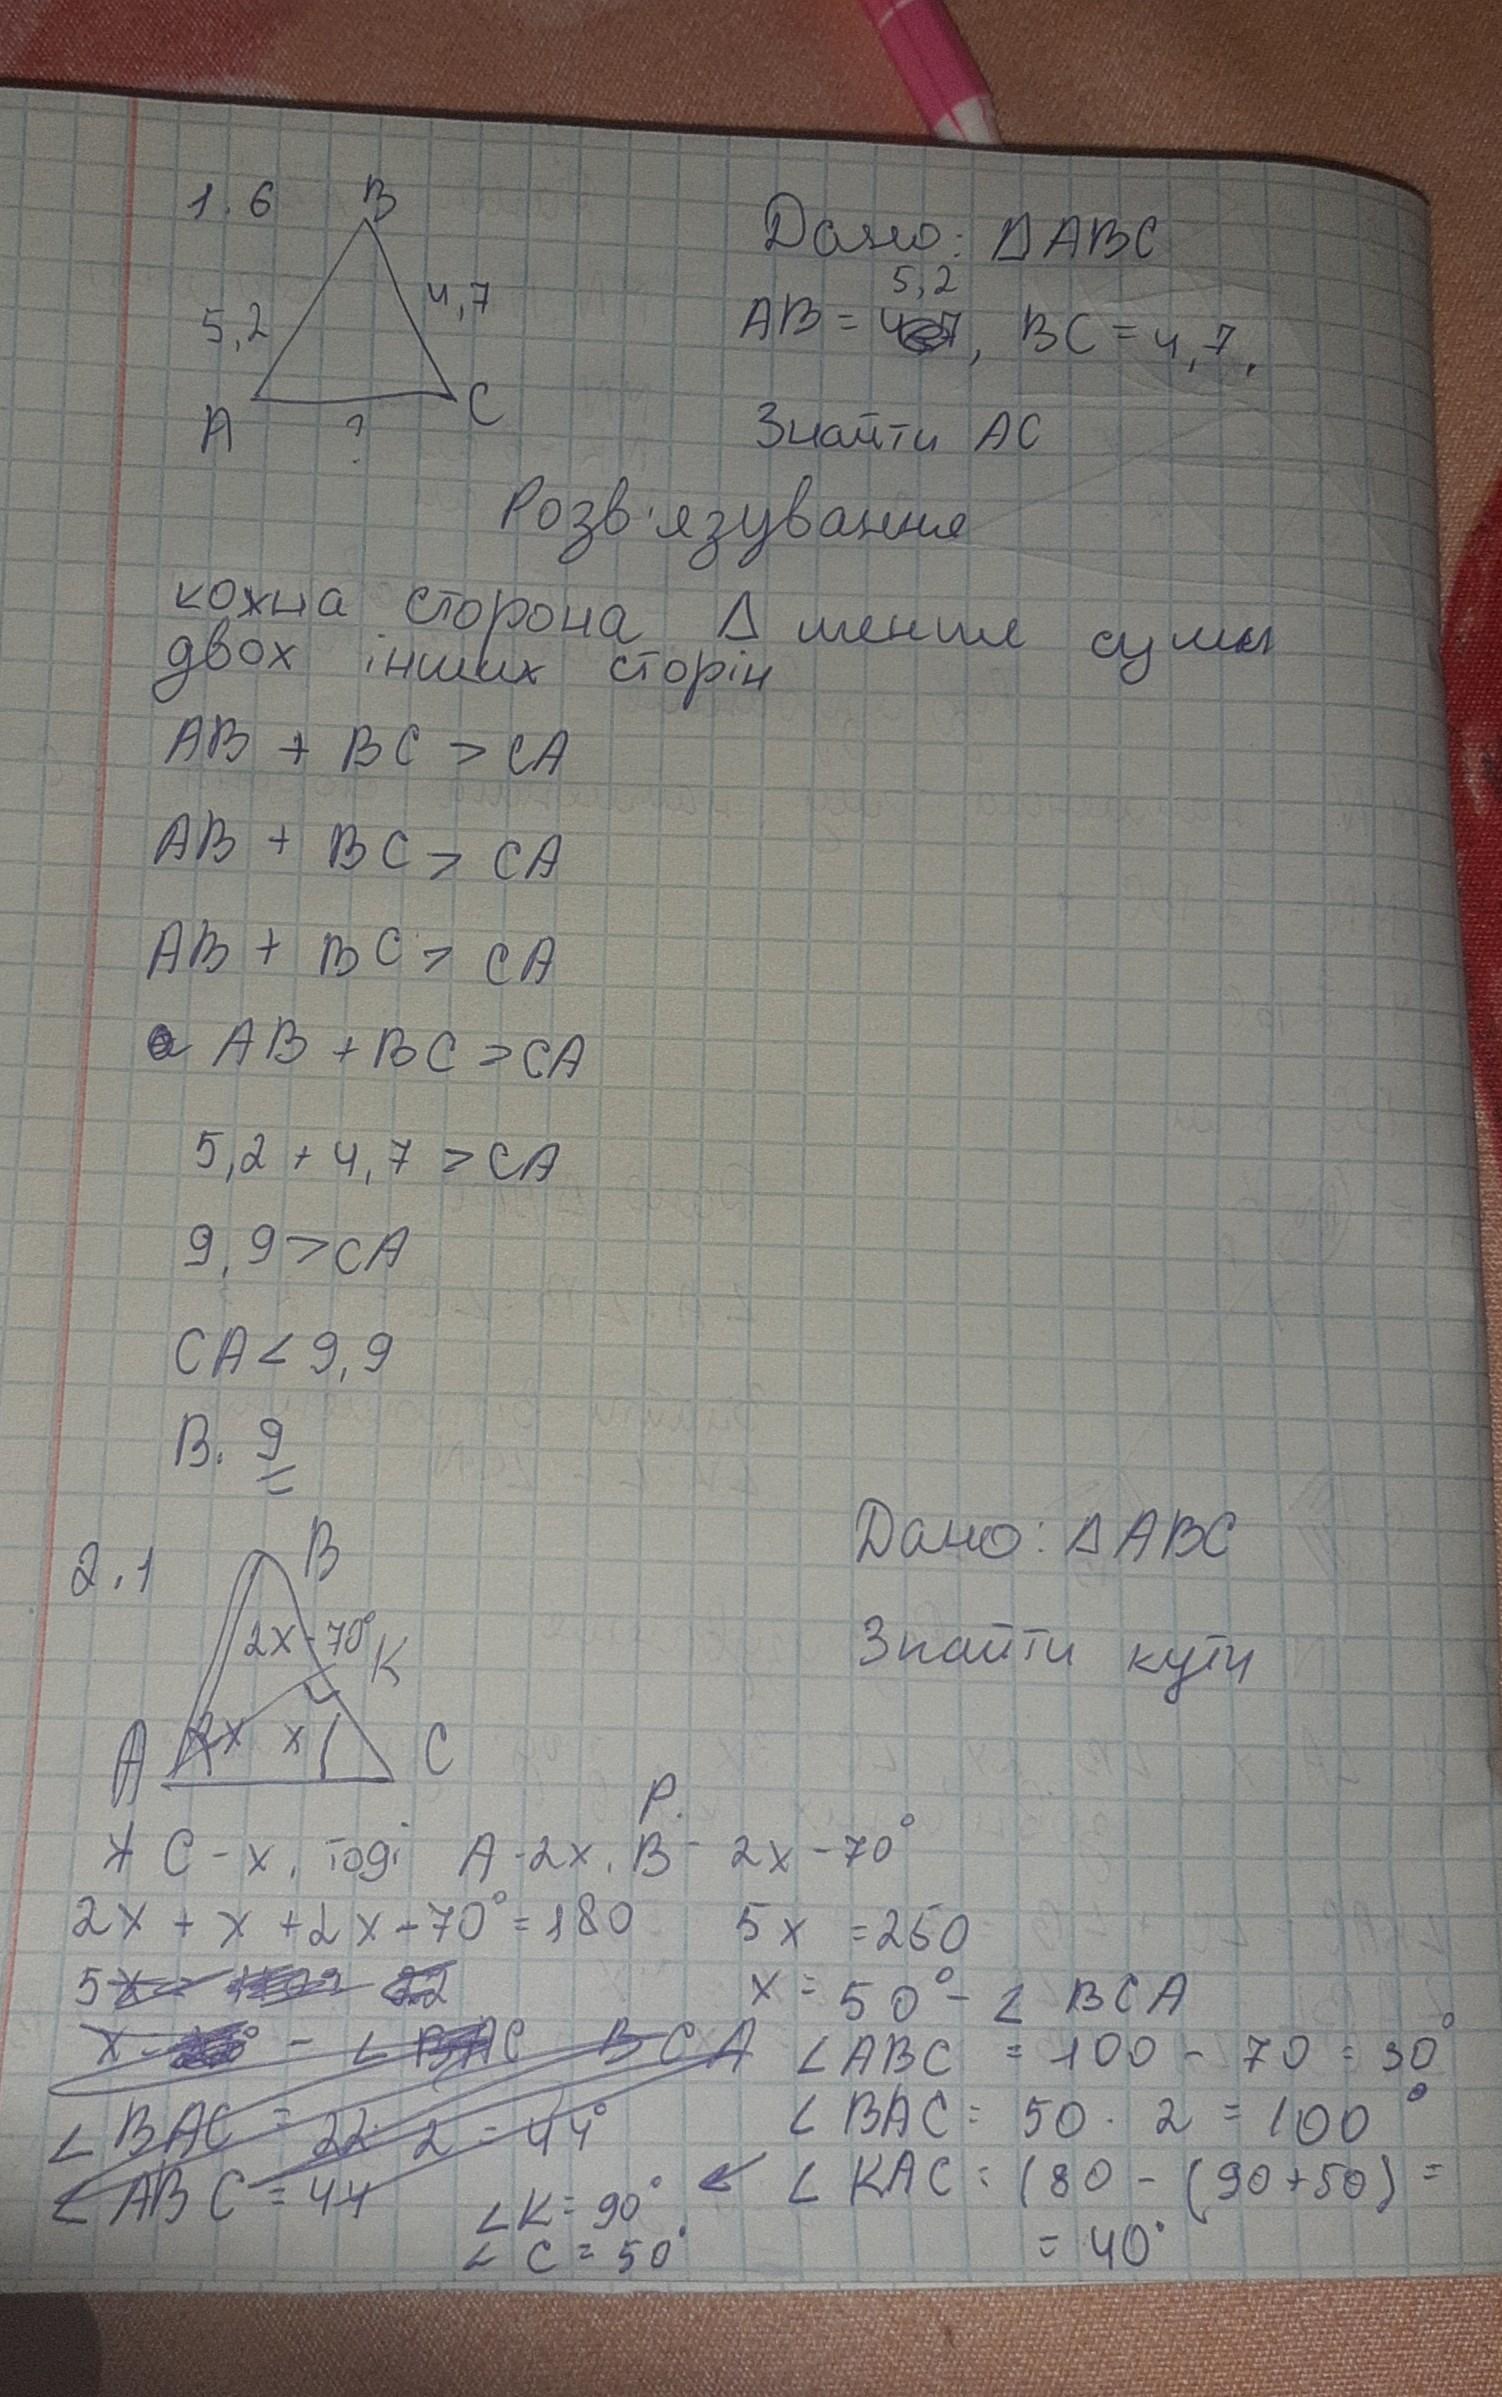 1.6
B
5,2
4,7
A
?
C
Дано: △ABC
5,2
AB = , BC = 4,7.
Знайти AC
Розв'язування
кожна сторона △ менше суми
двох інших сторін
AB + BC > CA
AB + BC > CA
AB + BC > CA
AB + BC > CA
5,2 + 4,7 > CA
9,9 > CA
CA < 9,9
В. 9
2.1
B
2x - 70°
K
A
2x
x
C
Дано: △ABC
Знайти кути
Р.
C - x, тоді A - 2x, B - 2x - 70°
2x + x + 2x - 70° = 180
5x = 250
x = 50° - ∠ BCA
∠ABC = 100 - 70 = 30°
∠ BAC = 50 · 2 = 100°
∠ KAC = 180 - (90+50) =
= 40°
5x
x - - ∠ BAC BCA
∠ BAC = 22 · 2 = 44°
∠ ABC = 44
∠K = 90°
∠ C = 50°